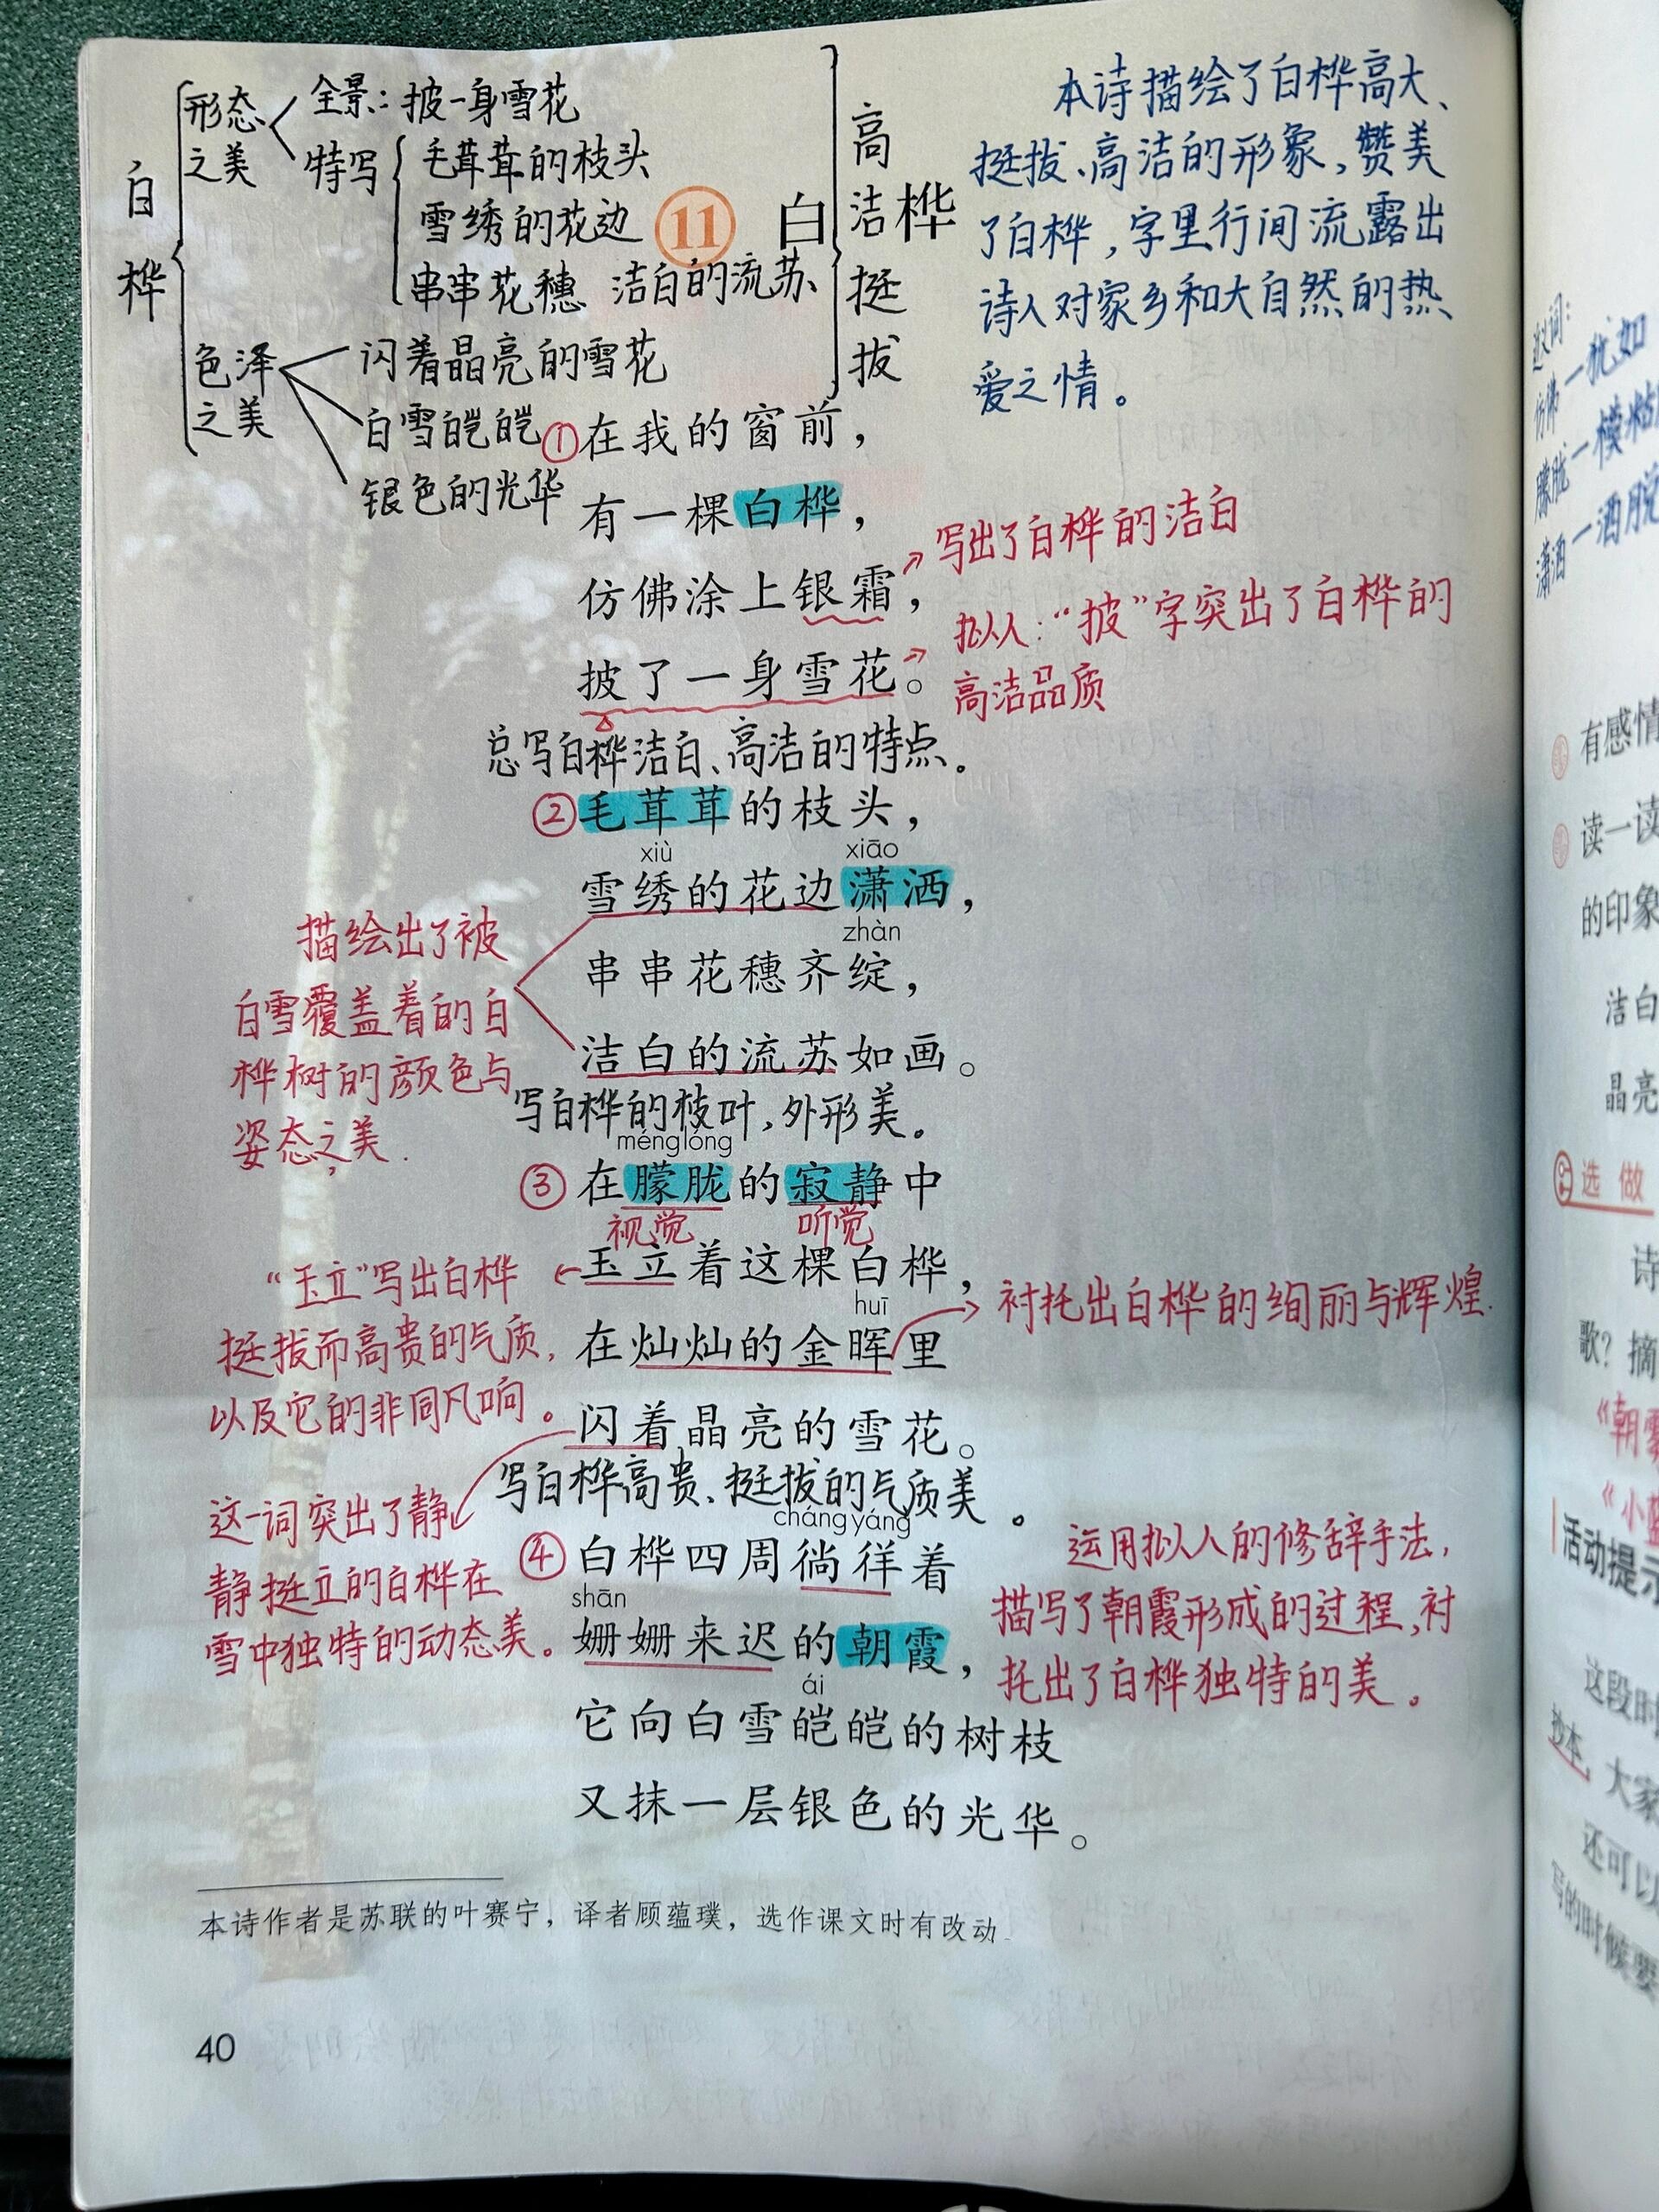 白桦
形态之美
全景：披一身雪花
特写
毛茸茸的枝头
雪绣的花边
串串花穗 洁白的流苏
色泽之美
闪着晶亮的雪花
白雪皑皑
银色的光华
高洁挺拔
11 白桦
本诗描绘了白桦高大、
挺拔、高洁的形象，赞美
了白桦，字里行间流露出
诗人对家乡和大自然的热
爱之情。
①在我的窗前，
有一棵白桦，
仿佛涂上银霜，
写出了白桦的洁白
披了一身雪花。
拟人：“披”字突出了白桦的
高洁品质
总写白桦洁白、高洁的特点。
②毛茸茸的枝头，
xiù xiāo
雪绣的花边潇洒，
zhàn
串串花穗齐绽，
洁白的流苏如画。
描绘出了被
白雪覆盖着的白
桦树的颜色与
姿态之美.
写白桦的枝叶，外形美。
ménglóng
③在朦胧的寂静中
视觉 听觉
玉立着这棵白桦，
“玉立”写出白桦
挺拔而高贵的气质，
以及它的非同凡响。
huī
在灿灿的金晖里
衬托出白桦的绚丽与辉煌.
闪着晶亮的雪花。
这一词突出了静
静挺立的白桦在
雪中独特的动态美。
写白桦高贵、挺拔的气质美。
chángyáng
④白桦四周徜徉着
shān
姗姗来迟的朝霞，
运用拟人的修辞手法，
描写了朝霞形成的过程，衬
托出了白桦独特的美。
ái
它向白雪皑皑的树枝
又抹一层银色的光华。
本诗作者是苏联的叶赛宁，译者顾蕴璞，选作课文时有改动
40
仿佛—犹如
朦胧—模糊
潇洒—洒脱
有感情
读一读
的印象
洁白
晶亮
选做
诗
歌？摘
活动提示
这段时
抄本
大家
还可以
写的时候要